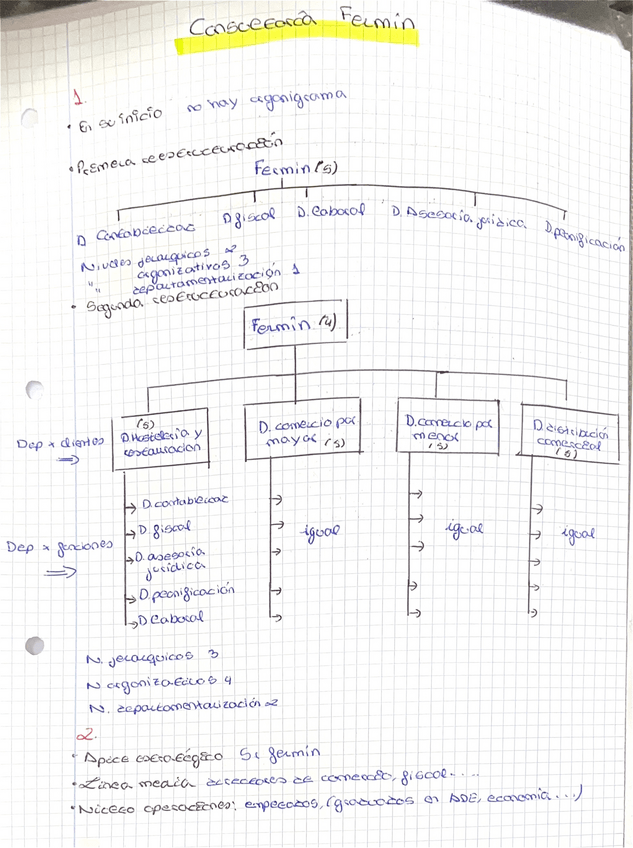 Consultoría Fermín
1.
• En su inicio no hay organigrama
• Primera reestructuración
Fermín (5)
D Contabilidad D fiscal D. Laboral D. Asesoría jurídica D. planificación
Niveles jerárquicos 2
" organizativos 3
" departamentalización 1
• Segunda reestructuración
Fermín (4)
Dep x clientes
(5)
D. Hostelería y
restauración
D. comercio por
mayor (5)
D. comercio por
menor
(5)
D. distribución
comercial
(5)
Dep x funciones
D. contabilidad
D. fiscal
D. asesoría
jurídica
D. planificación
D Laboral
igual
igual
igual
N. jerárquicos 3
N organizativos 4
N. departamentalización 2
2.
• Ápice estratégico Sr fermín
• Línea media directores de comercio, fiscal....
• Núcleo operaciones: empleados, (graduados en ADE, economía...)